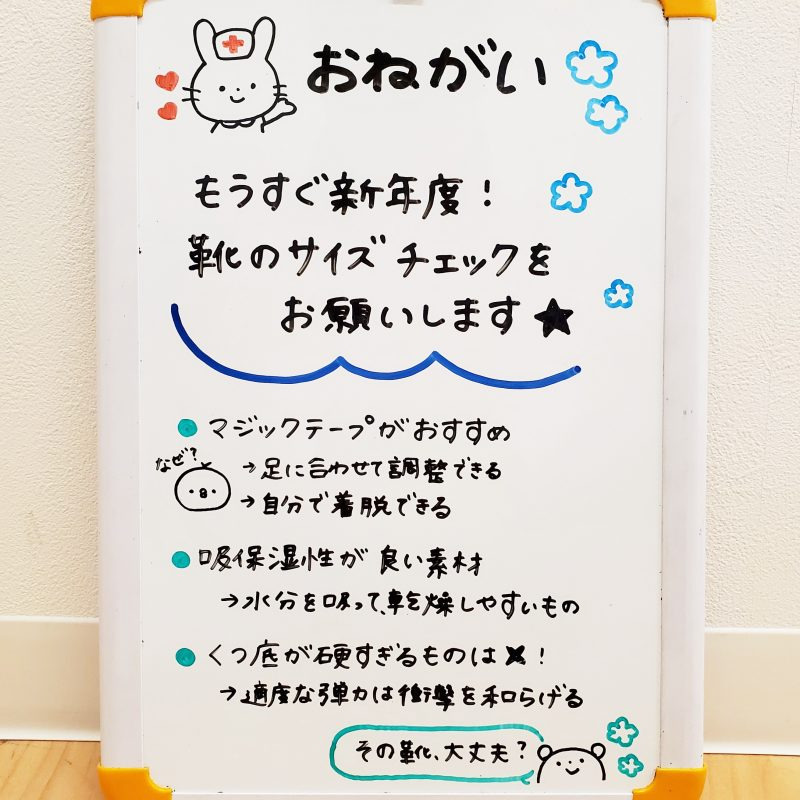 おねがい
もうすぐ新年度!
靴のサイズチェックを
お願いします★
マジックテープがおすすめ
なぜ?
→足に合わせて調整できる
→自分で着脱できる
吸保湿性が良い素材
→水分を吸って、乾燥しやすいもの
くつ底が硬すぎるものは✖!
→適度な弾力は衝撃を和らげる
その靴、大丈夫?